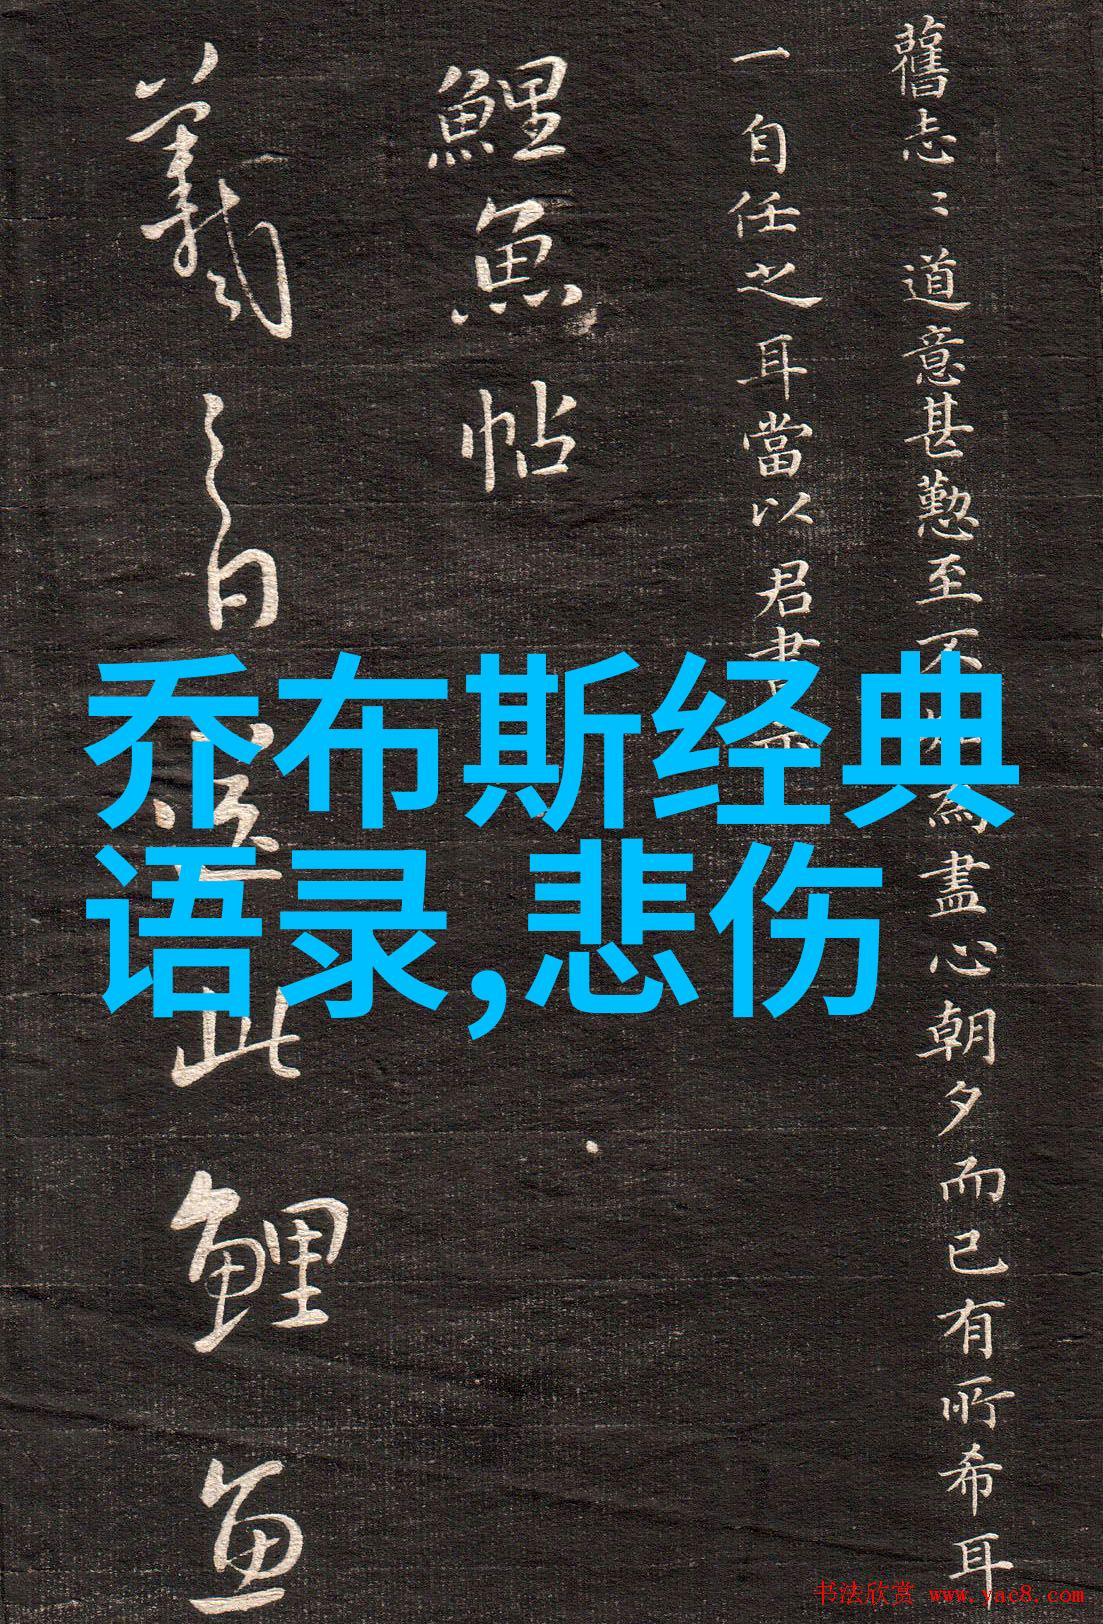 舊志〻道意甚懃至不為盡心朝夕而已有所希耳
一自任之耳當以君書
鯉魚帖
羲之白此鯉魚
乔布斯经典
语录,悲伤
书法欣赏 www.yac8.com